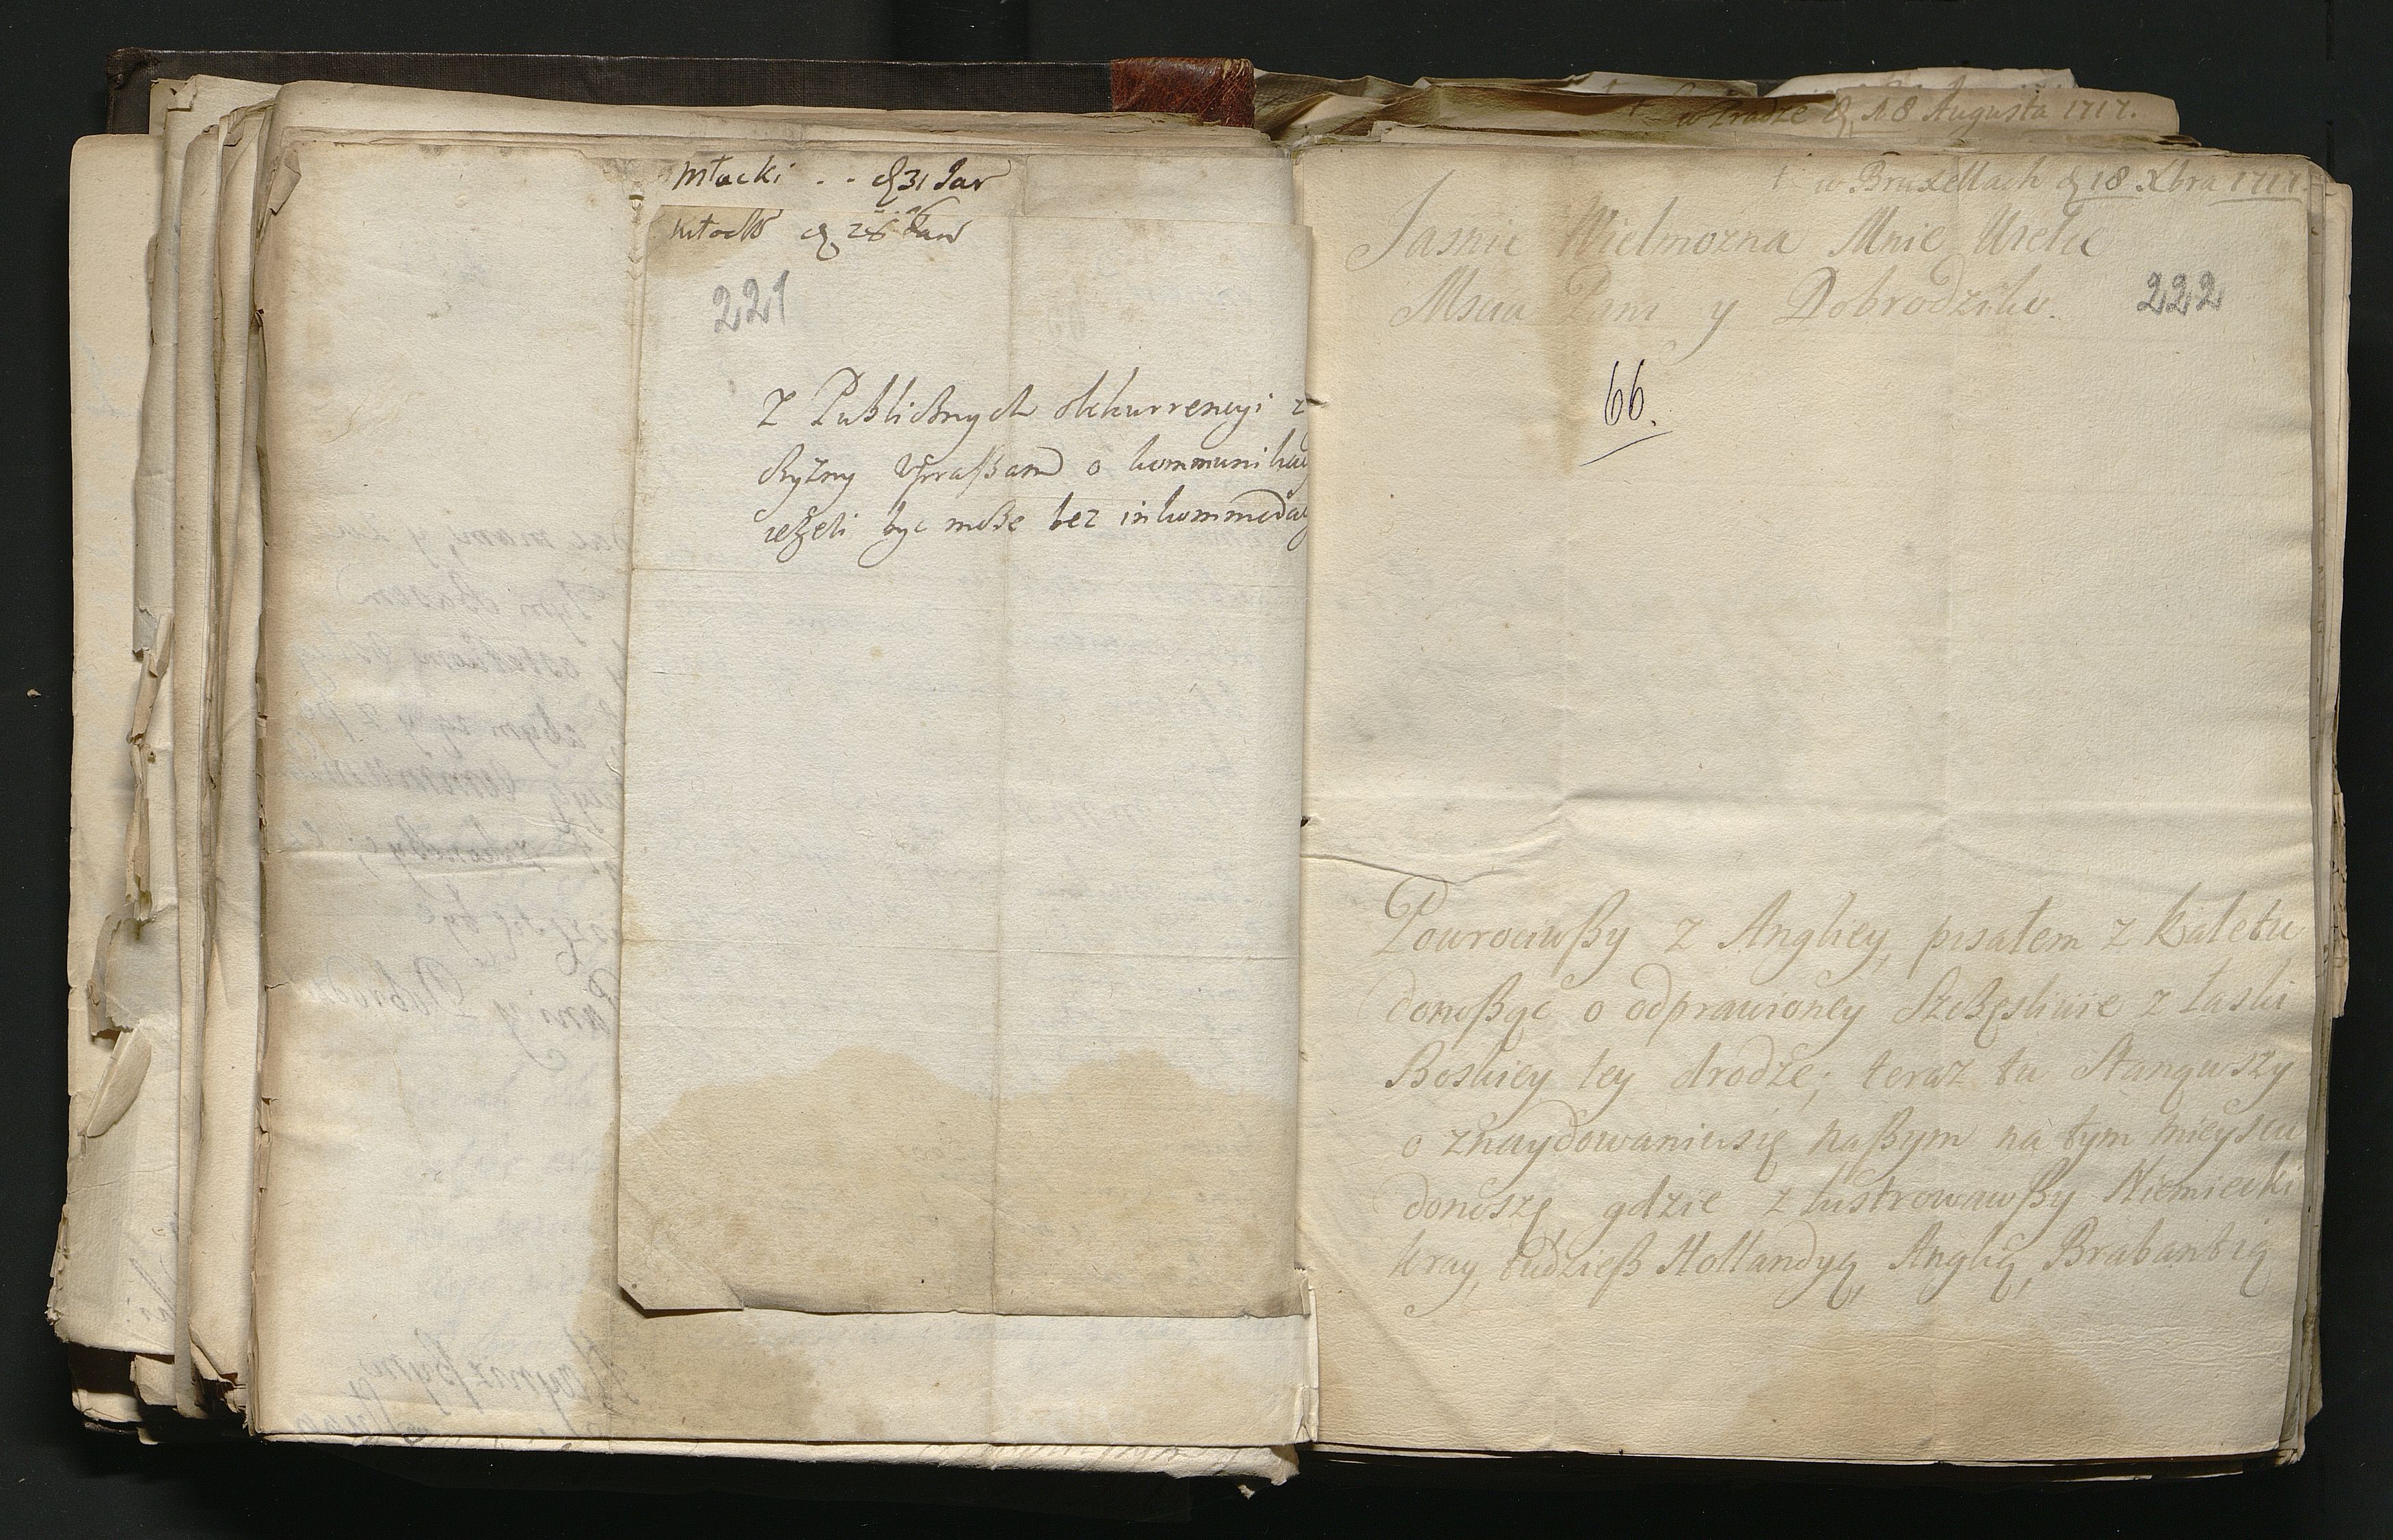 Młocki . . d 31 Jan
d 28 Jan
221
Z Publicznych okkurrencyi z
czyzny upraszam o kommunikacy
ieżeli być może bez inkommodacy
w Pradze d 18 Augusta 1717.
w Bruxellach d 18 Xbra 1717.
Jasnie Wielmozna Mnie Wielce
Mscia Pani y Dobrodziko.
222
66.
Powrociwszy z Angliey, pisałem z Kaletu
donosząc o odprawioney Szczęsliwie z łaski
Boskiey tey drodze; teraz tu Stanąwszy
o znaydowaniusię naszym na tym mieyscu
donoszę, gdzie zlustrowawszy Niemiecki
kray, tudziesz Hollandyą, Anglią, Brabantią